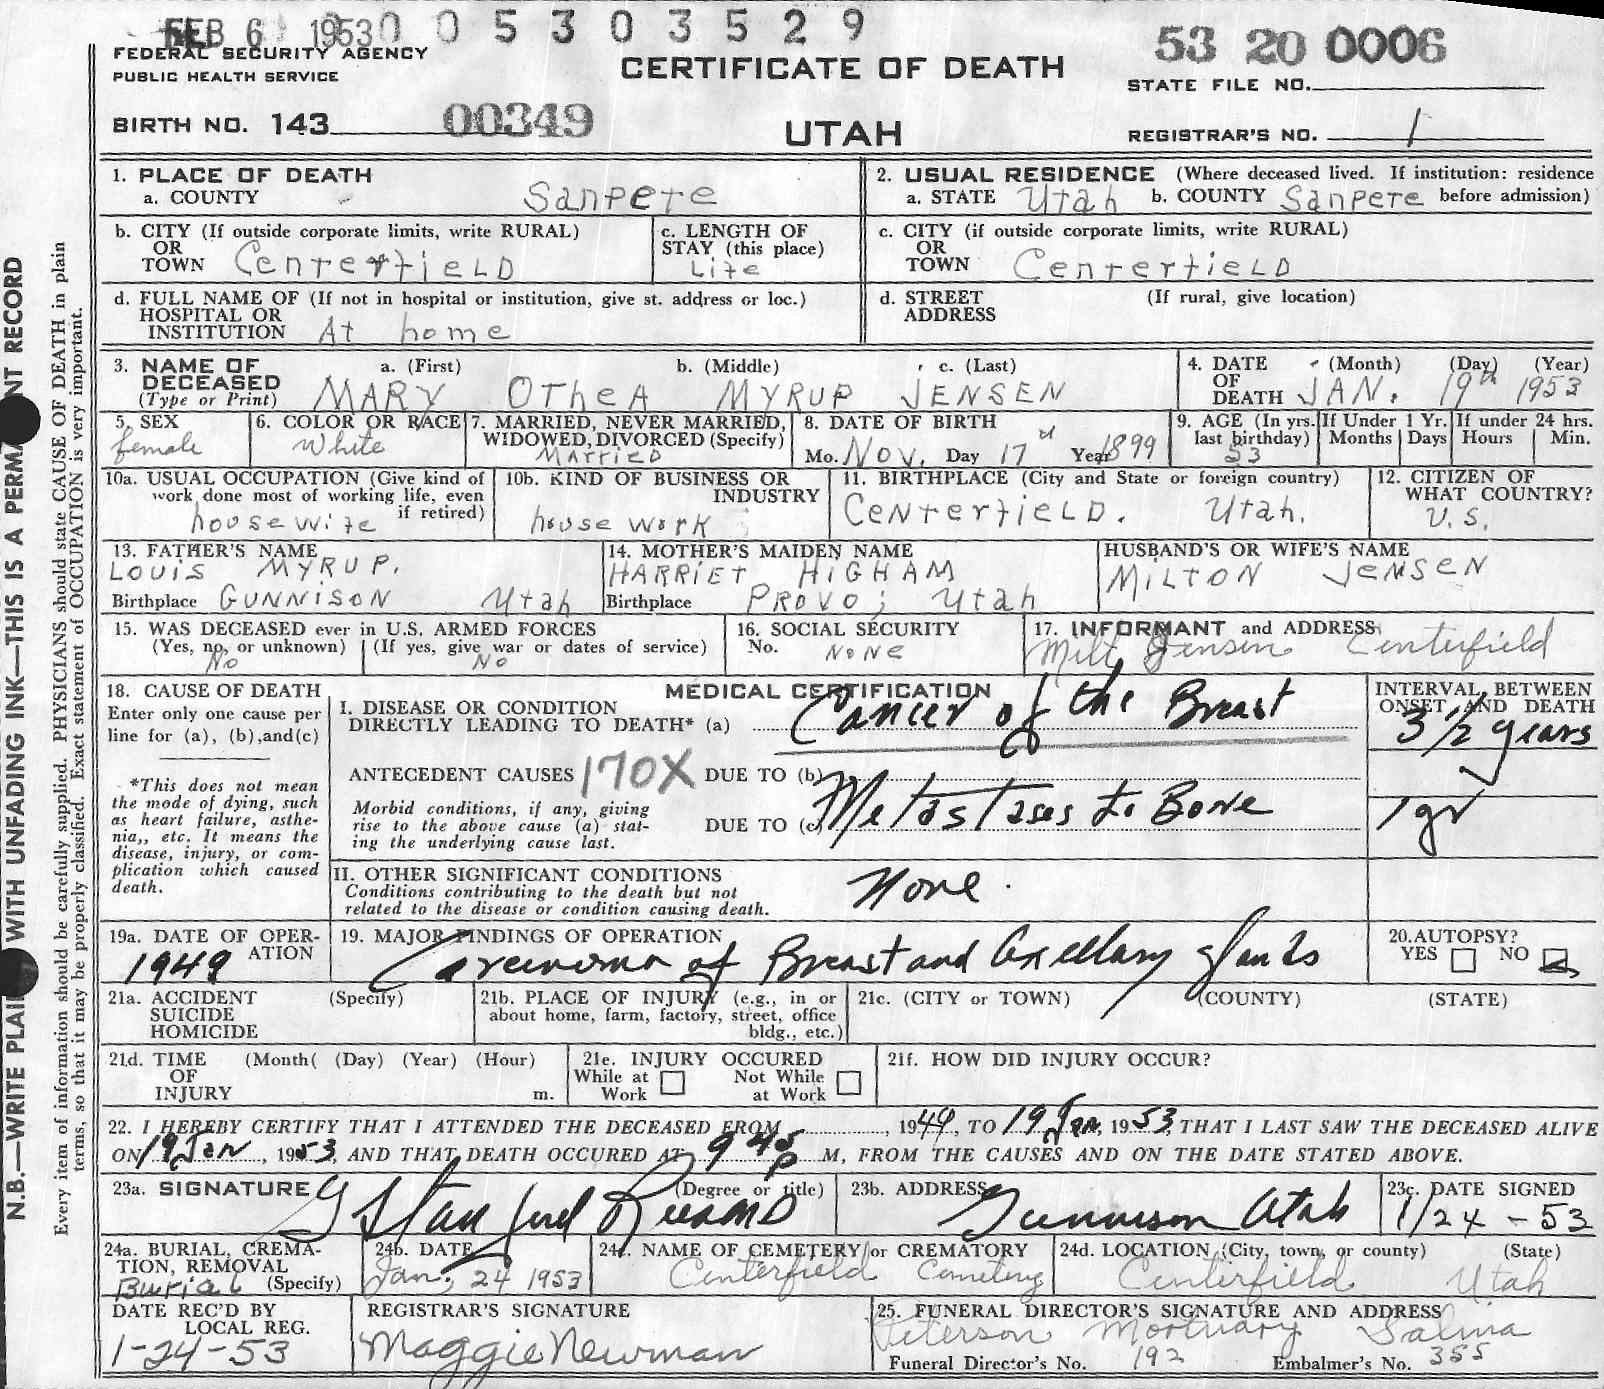 FEB 6 1953 0 0 5 3 0 3 5 2 9
53 20 0006
FEDERAL SECURITY AGENCY
PUBLIC HEALTH SERVICE
CERTIFICATE OF DEATH
STATE FILE NO.
BIRTH NO. 143 00349
UTAH
REGISTRAR'S NO. 1
1. PLACE OF DEATH
a. COUNTY Sanpete
2. USUAL RESIDENCE (Where deceased lived. If institution: residence
a. STATE Utah b. COUNTY Sanpete before admission)
b. CITY (If outside corporate limits, write RURAL)
OR
TOWN Centerfield
c. LENGTH OF
STAY (this place)
Life
c. CITY (if outside corporate limits, write RURAL)
OR
TOWN Centerfield
d. FULL NAME OF (If not in hospital or institution, give st. address or loc.)
HOSPITAL OR
INSTITUTION At home
d. STREET (If rural, give location)
ADDRESS
3. NAME OF DECEASED
(Type or Print)
a. (First) b. (Middle) c. (Last)
MARY OTheA MYRUP JENSEN
4. DATE (Month) (Day) (Year)
OF
DEATH JAN. 19th 1953
5. SEX
female
6. COLOR OR RACE
White
7. MARRIED, NEVER MARRIED,
WIDOWED, DIVORCED (Specify)
MArried
8. DATE OF BIRTH
Mo. Nov. Day 17 Year 1899
9. AGE (In yrs.
last birthday)
53
If Under 1 Yr.
Months Days
If under 24 hrs.
Hours Min.
10a. USUAL OCCUPATION (Give kind of
work done most of working life, even
if retired)
housewife
10b. KIND OF BUSINESS OR
INDUSTRY
house work
11. BIRTHPLACE (City and State or foreign country)
Centerfield. Utah.
12. CITIZEN OF
WHAT COUNTRY?
U.S.
13. FATHER'S NAME
LOUIS MYRUP.
Birthplace GUNNISON Utah
14. MOTHER'S MAIDEN NAME
HARRIET HIGHAM
Birthplace PROVO; Utah
HUSBAND'S OR WIFE'S NAME
MILTON JENSEN
15. WAS DECEASED ever in U.S. ARMED FORCES
(Yes, no, or unknown) (If yes, give war or dates of service)
No No
16. SOCIAL SECURITY
No. NONE
17. INFORMANT and ADDRESS
Milt Jensen Centerfield
18. CAUSE OF DEATH
Enter only one cause per
line for (a), (b), and(c)
*This does not mean
the mode of dying, such
as heart failure, asthe-
nia,, etc. It means the
disease, injury, or com-
plication which caused
death.
MEDICAL CERTIFICATION
I. DISEASE OR CONDITION
DIRECTLY LEADING TO DEATH* (a) Cancer of the Breast
ANTECEDENT CAUSES 170X DUE TO (b)
Morbid conditions, if any, giving
rise to the above cause (a) stat-
ing the underlying cause last.
DUE TO (c) Metastases to Bone
II. OTHER SIGNIFICANT CONDITIONS
Conditions contributing to the death but not
related to the disease or condition causing death.
None.
INTERVAL BETWEEN
ONSET AND DEATH
3 1/2 years
1 yr
19a. DATE OF OPER-
ATION
1949
19. MAJOR FINDINGS OF OPERATION
Carcinoma of Breast and Axellary glands
20. AUTOPSY?
YES NO
21a. ACCIDENT (Specify)
SUICIDE
HOMICIDE
21b. PLACE OF INJURY (e.g., in or
about home, farm, factory, street, office
bldg., etc.)
21c. (CITY or TOWN) (COUNTY) (STATE)
21d. TIME (Month( (Day) (Year) (Hour)
OF
INJURY m.
21e. INJURY OCCURED
While at Work
Not While at Work
21f. HOW DID INJURY OCCUR?
22. I HEREBY CERTIFY THAT I ATTENDED THE DECEASED FROM , 1949, TO 19 Jan, 1953, THAT I LAST SAW THE DECEASED ALIVE
ON 19 Jan, 1953, AND THAT DEATH OCCURED AT 9 45 P M, FROM THE CAUSES AND ON THE DATE STATED ABOVE.
23a. SIGNATURE (Degree or title)
G Stanford Rees MD
23b. ADDRESS
Gunnison Utah
23c. DATE SIGNED
1/24-53
24a. BURIAL, CREMA-
TION, REMOVAL
(Specify)
Burial
24b. DATE
Jan, 24 1953
24c. NAME OF CEMETERY or CREMATORY
Centerfield Cemetery
24d. LOCATION (City, town, or county) (State)
Centerfield Utah
DATE REC'D BY
LOCAL REG.
1-24-53
REGISTRAR'S SIGNATURE
Maggie Newman
25. FUNERAL DIRECTOR'S SIGNATURE AND ADDRESS
Peterson Mortuary Salina
Funeral Director's No. 192 Embalmer's No. 355
N.B.—WRITE PLAI WITH UNFADING INK—THIS IS A PERMA NT RECORD
Every item of information should be carefully supplied. PHYSICIANS should state CAUSE OF DEATH in plain
terms, so that it may be properly classified. Exact statement of OCCUPATION is very important.